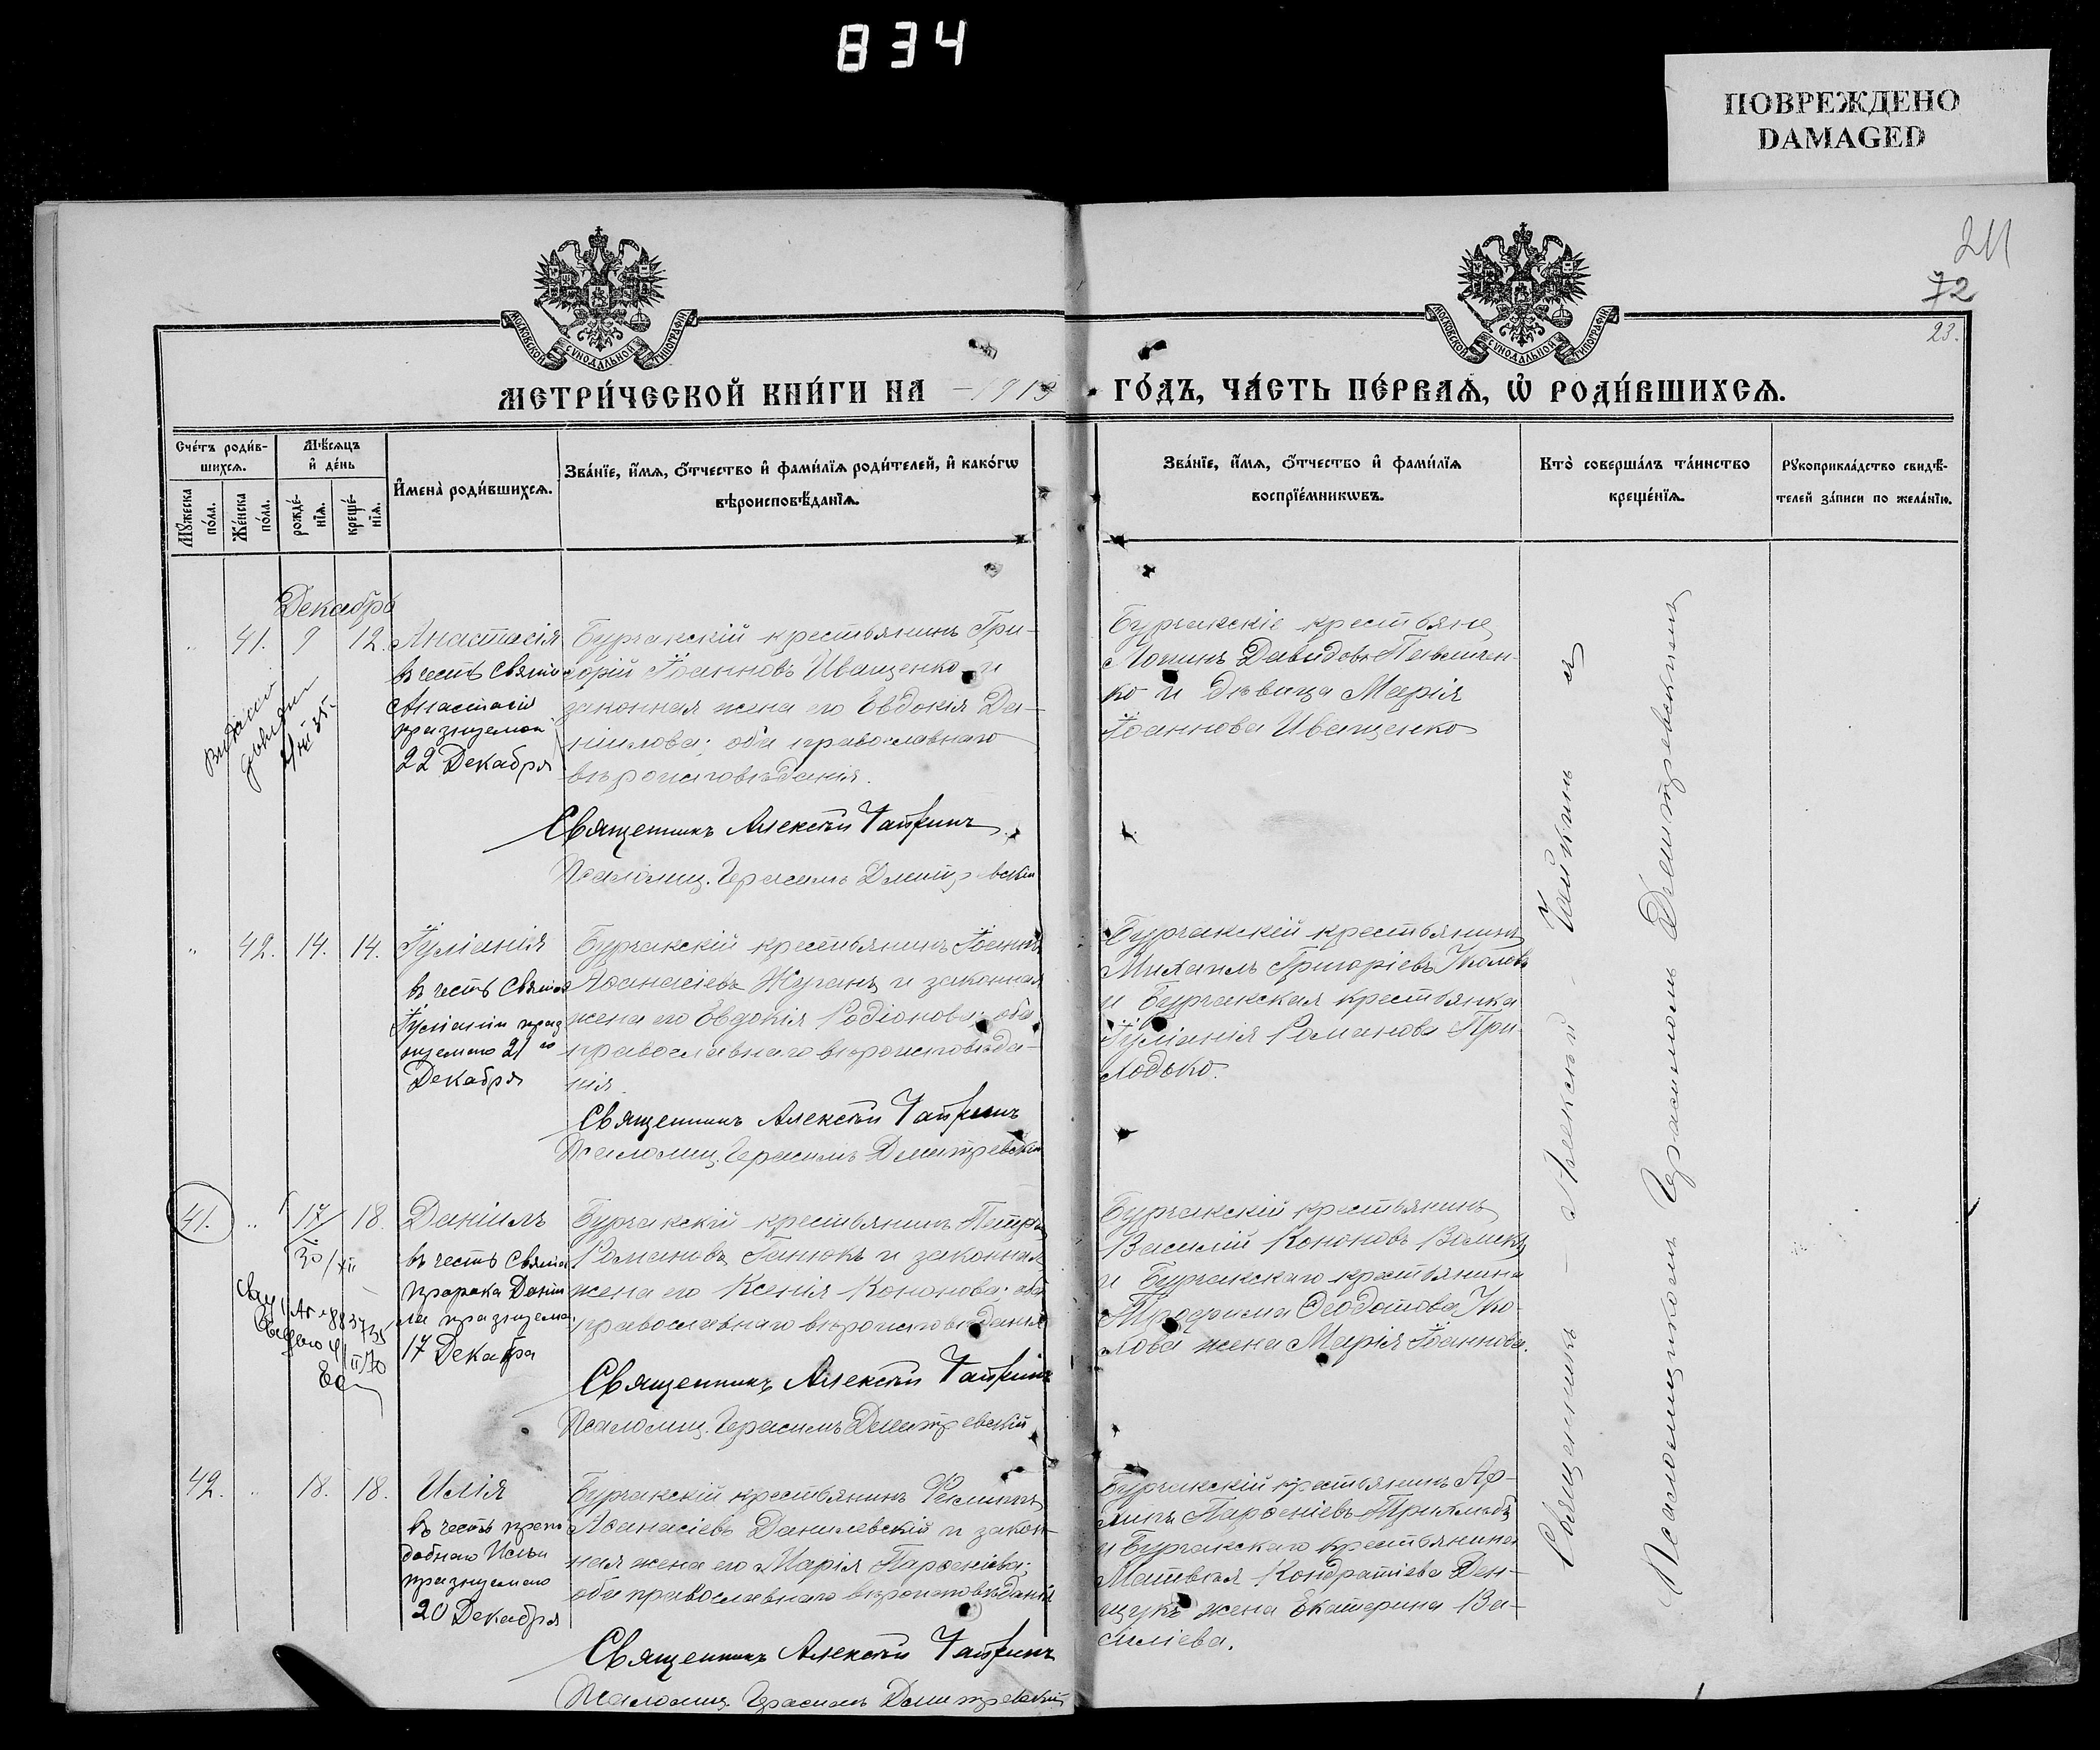 834
ПОВРЕЖДЕНО
DAMAGED
211
72
23.
МОСКОВСКОЙ СѴНОДАЛЬНОЙ ТИПОГРАФІИ
МОСКОВСКОЙ СѴНОДАЛЬНОЙ ТИПОГРАФІИ
МЕТРИ́ЧЕСКОЙ КНИ́ГИ НА 1913 ГО́ДЪ, ЧА́СТЬ ПЕ́РВАѦ, Ѽ РОДИ́ВШИХСѦ.
Сче́тъ роди́в-
шихсѧ.
Мѣ́сѧцъ
и҆ де́нь
Мꙋ́жеска
по́ла.
Же́нска
по́ла.
рожде́-
нїѧ.
креще́-
нїѧ.
И҆мена̀ роди́вшихсѧ.
Зва́нїе, и҆́мѧ, ѻ҆́тчество и҆ фами́лїѧ роди́телей, и҆ како́гѡ
вѣроисповѣ́данїѧ.
Зва́нїе, и҆́мѧ, ѻ҆́тчество и҆ фами́лїѧ
воспрїе́мникѡвъ.
Кто̀ соверша́лъ та́инство
креще́нїѧ.
Рꙋкоприкла́дство свидѣ́-
телей за́писи по жела́нїю.
Декабрь
„ 41. 9 12. Анастасія
въ честь Святой
Анастасіи
празнуемой
22 Декабря
Бурчакскій крестьянинъ Гри-
горій Іоанновъ Иващенко и
законная жена его Евдокія Да-
ніилова; оба православнаго
вѣроисповѣданія.
Священникъ Алексѣй Чайкинъ
Псаломщ. Герасимъ Дмитревскій
Бурчакскіе крестьяне
Логинъ Давидовъ Павличен-
ко и дѣвица Марія
Іоаннова Иващенко
„ 42. 14. 14. Іуліанія
въ честь Святой
Іуліаніи праз
нуемаго 21 го
Декабря
Бурчакскій крестьянинъ Іоаннъ
Аѳанасіевъ Журанъ и законная
жена его Евдокія Родіонова; оба
православнаго вѣроисповѣда-
нія
Священникъ Алексѣй Чайкинъ
Псаломщ. Герасимъ Дмитревскій
Бурчакскій крестьянинъ
Михаилъ Григоріевъ
и Бурчакская крестьянка
Іуліанія Романова При-
ходько.
41. „ 17 18. Даніилъ
30/XII
въ честь Святаго
пророка Дани
ла празнуемаго
17 Декабра
Бурчакскій крестьянинъ Петръ
Романовъ Ганюкъ и законная
жена его Ксенія Кононова; оба
православнаго вѣроисповѣданія
Священникъ Алексѣй Чайкинъ
Псаломщ. Герасимъ Дмитревскій
Бурчакскій крестьянинъ
Василій Кононовъ Воликъ
и Бурчакскаго крестьянина
Трофима Ѳеодотова
жена Марія Іоаннова.
42. „ 18. 18. Илія
въ честь препо
добнаго Ильи
празнуемаго
20 Декабря
Бурчакскій крестьянинъ Филиппъ
Аѳанасіевъ Данилевскій и закон-
ная жена его Марія Парѳеніева;
оба православнаго вѣроисповѣданія
Священникъ Алексѣй Чайкинъ
Псаломщ. Герасимъ Дмитревскій
Бурчакскій крестьянинъ
Парѳеніевъ
и Бурчакскаго крестьянина
Матвѣя Кондратіева Ден-
щукъ жена Екатерина Ва-
силіева.
Священникъ – Алексѣй – Чайкинъ
Псаломщикомъ Герасимомъ Дмитревскимъ